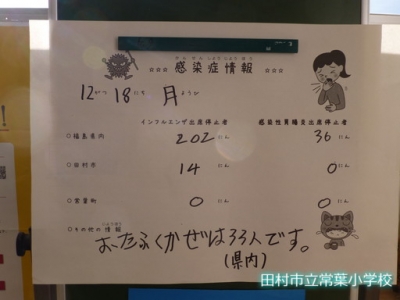 かんせんしょうじょうほう
☆☆☆ 感染症情報 ☆☆☆
12がつ 18にち 月ようび
インフルエンザ出席停止者 感染性胃腸炎出席停止者
○福島県内 202にん 36にん
○田村市 14にん 0にん
○常葉町 0にん 0にん
○その他の情報
じょうほう
おたふくかぜは33人です。
(県内)
田村市立常葉小学校